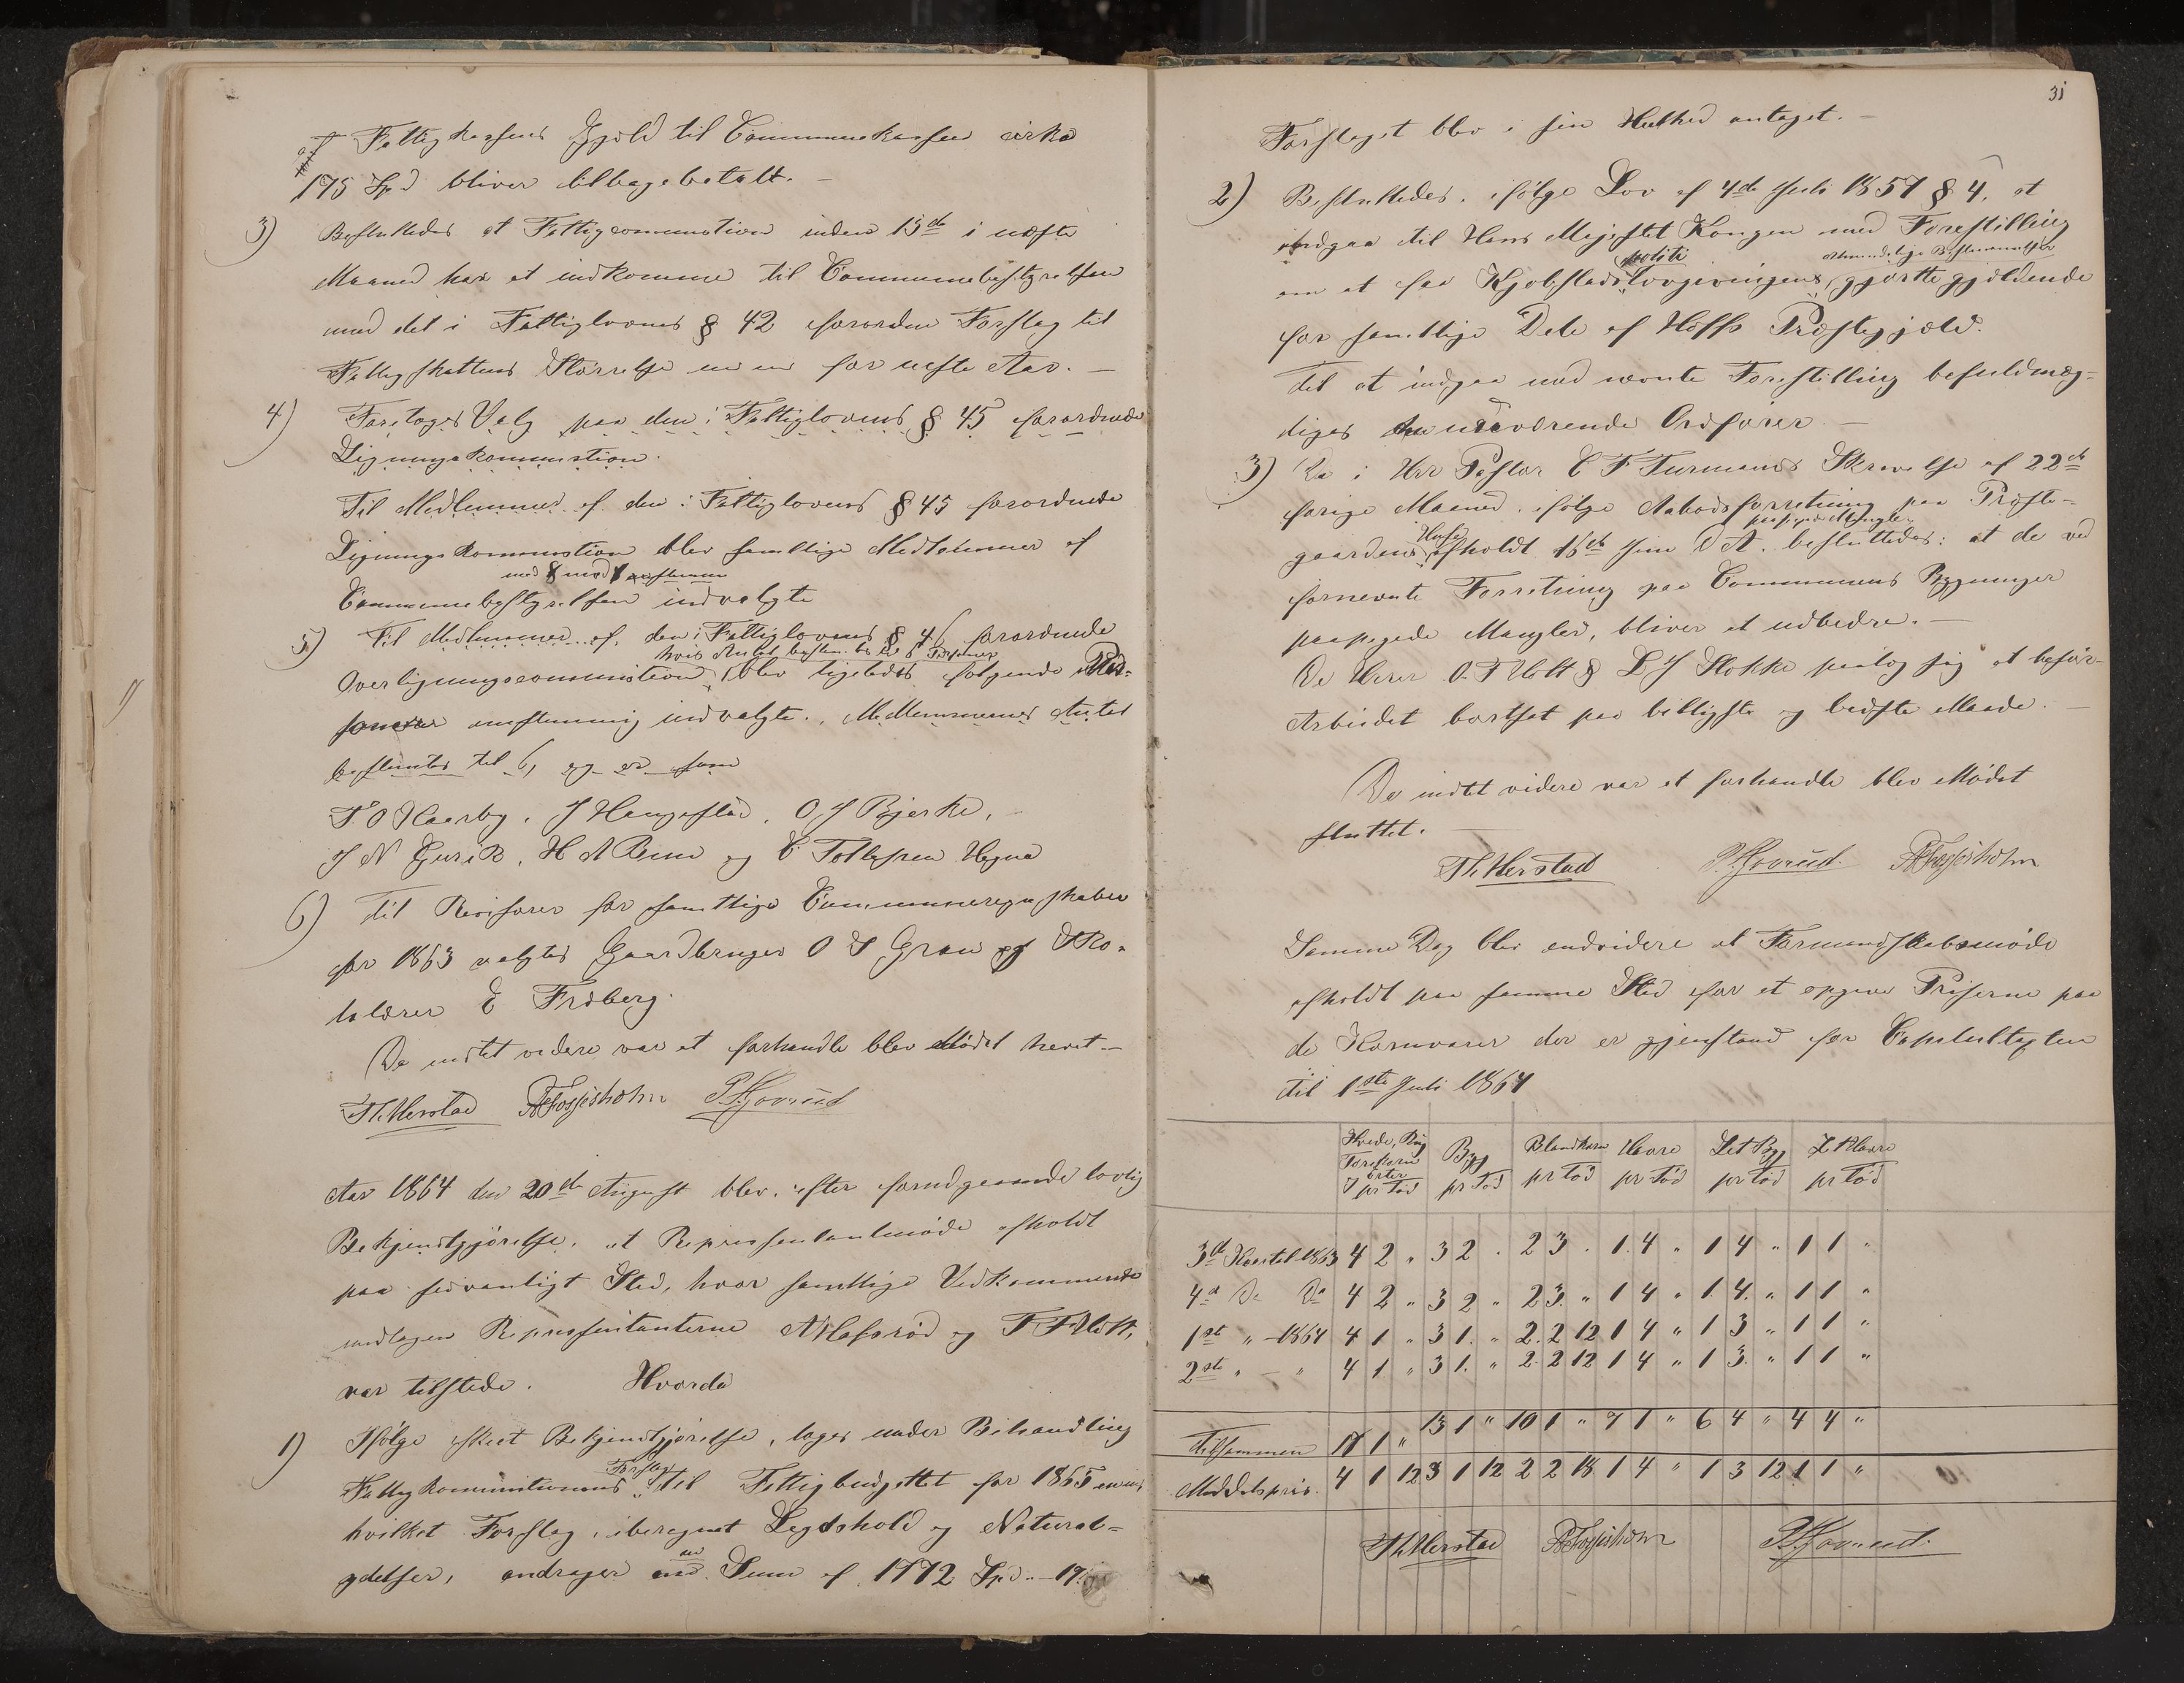 af Fattigkassens Gjæld til Communekassen cirka
175 Spd bliver tilbagebetalt. –
3) Besluttedes at Fattigcommistion inden 15de i næste
Maaned har at indkomme til Communebestyrelsen
med det i Fattiglovens § 42 forordne Forslag til
Fattigskattens Størrelse m m for næste Aar. –
4) Foretoges Valg paa den i Fattiglovens § 45 forordnede
Ligningskommistion.
Til Medlemmer af den i Fattiglovens § 45 forordnede
Lignings kommistion blev samtlige Medlemmer af
med 8 mod 1 stemme
Communebestyrelsen indvalgte
5) Til Medlemmer af den i Fattiglovens § 46 forordnede
hvis Antal bestemtes til 6 Personer
Overligningscommistion, blev ligeledes følgende Per-
soner enstemmig indvalgte. Medlemmernes Antal
bestemtes til 6, og er som
T. O Haarby, J Haugestad, O J Bjerke, –
J N Gurik, H A Bruu og C Tollefsen Hegna
6) Til Revisorer for samtlige Communeregnskaber
for 1863 valgtes Gaardbruger O S Grau og Sko-
lelærer E Frøberg.
Da intet videre var at forhandle blev Mødet hævet –
Th. Merstad A Fossesholm P. Hovrud
Aar 1864 den 20de August blev, efter forudgaaende lovlig
Bekjendtgjörelse, et Repræsentantmøde afholdt
paa sedvanligt Sted, hvor samtlige Vedkommende
undtagen Repræsentanterne A Hassrød og T F Holt,
var tilstede. Hvorda
1) Ifølge skeet Bekjendtgjørelse, toges under Behandling
Forslag
Fattigkommistionens til Fattigbudgettet for 1865
hvilket Forslag, iberegnet Legdshold og Natural-
ydelser, andrager en Sum af 1772 Spd – 19
31
Forslaget blev i sin Heelhed antaget. –
2) Besluttedes, ifølge Lov af 4de Juli 1857 § 4, at
indgaa til Hans Majestet Kongen med Forestilling
politi almindelige Bestemmelser
om at faa Kjøbstadslovgivningens gjorte gjældende
for samtlige Dele af Hoffs Præstegjæld.
Til at indgaa med nævnte Forestilling befuldmæg-
tiges nuværende Ordfører –
3) Da i Hrr Pastor C F Turmanns Skrivelse af 22de
forige Maaned, ifølge Aabodsforretning paa Præste-
Huse paapegede Mangler
gaardens afholdt 16de Juni D A. besluttedes: at de ved
fornevnte Forretning paa Communens Bygninger
paapegede Mangler, bliver at udbedre. –
De Herrer O. T Holt & L J Stokke paatog sig at besør-
Arbeidet bortsat paa billigste og bedste Maade. –
Da intet videre var at forhandle blev Mødet
sluttet. –
Th. Merstad P. Hovrud. A Fossesholm
Samme Dag blev endvidere et Formandskabsmøde
afholdt paa samme Sted for at opgive Priserne paa
de Kornvarer der er gjenstand for Capiteltaxten
til 1ste Juli 1864
Hvede, Rug Torekorn Erter pr Tød | Byg pr Tød | Blandkorn pr Tød | Havre pr Tød | Let Byg pr Tød | L Havre pr Tød
3de Kvartal 1863 4 2 " 3 2 . 2 3 . 1 4 " 1 4 " 1 1 "
4de Do Do 4 2 " 3 2 " 2 3 " 1 4 " 1 4 " 1 1 "
1ste " – 1864 4 1 " 3 1 " 2 2 12 1 4 " 1 3 " 1 1 "
2ste " – " 4 1 " 3 1 " 2 2 12 1 4 " 1 3 " 1 1 "
Tilsammen 17 1 " 13 1 " 10 1 " 7 1 " 6 4 " 4 4 "
Middelspris. 4 1 12 3 1 12 2 2 18 1 4 " 1 3 12 1 1 "
Th. Merstad A Fossesholm P. Hovrud.